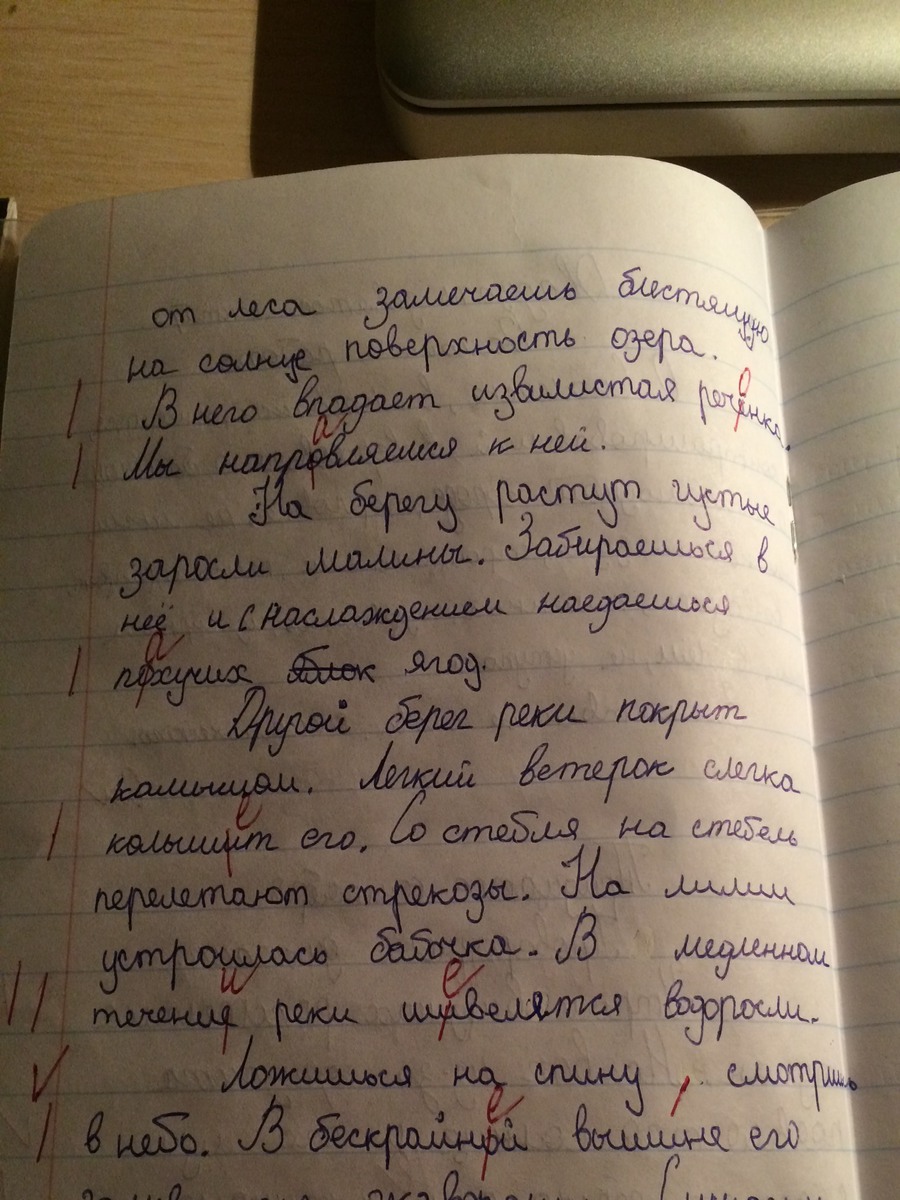 от леса замечаешь блестящую
на солнце поверхность озера.
В него впадает извилистая речёнка.
Мы напровляемся к ней.
На берегу растут густые
заросли малины. Забираешься в
неё и с наслаждением наедаешься
похучих яблок ягод.
Другой берег реки покрыт
камышом. Легкий ветерок слегка
колышит его. Со стебля на стебель
перелетают стрекозы. На лилии
устроилась бабочка. В медленном
течение реки шивелятся водоросли.
Ложишься на спину, смотришь
в небо. В бескрайний вышине его